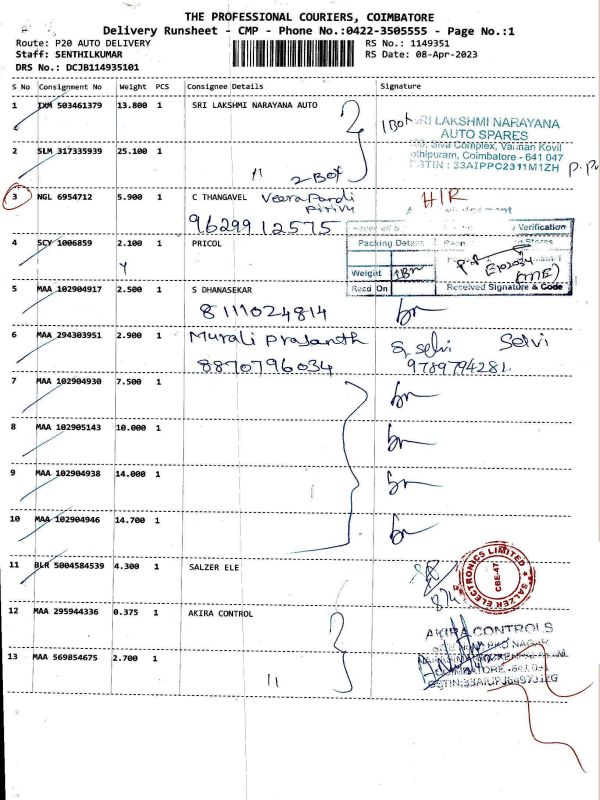 THE PROFESSIONAL COURIERS, COIMBATORE
Delivery Runsheet - CMP - Phone No.:0422-3505555 - Page No.:1
Route: P20 AUTO DELIVERY RS No.: 1149351
Staff: SENTHILKUMAR RS Date: 08-Apr-2023
DRS No.: DCJB114935101
S No Consignment No Weight PCS Consignee Details Signature
1 IXM 503461379 13.800 1 SRI LAKSHMI NARAYANA AUTO
1 Box SRI LAKSHMI NARAYANA
AUTO SPARES
Coimbatore - 641 047
2 SLM 317335939 25.100 1
GSTIN : 33AIPPC2311M1ZH
" 2 Box
3 NGL 6954712 5.900 1 C THANGAVEL Veerapandi H/R
Pirivu
9629912575
Verification
4 SCY 1006859 2.100 1 PRICOL Packing Details
Weight
Recd On Received Signature & Code
5 MAA 102904917 2.500 1 S DHANASEKAR
8111024814
6 MAA 294303951 2.900 1 Murali Prasanth S. Selvi Selvi
8870796034 9789794281
7 MAA 102904930 7.500 1
8 MAA 102905143 10.000 1
9 MAA 102904938 14.000 1
10 MAA 102904946 14.700 1
11 BLR 5004584539 4.300 1 SALZER ELE
SALZER ELECTRONICS LIMITED
CBE-47
12 MAA 295944336 0.375 1 AKIRA CONTROL
AKIRA CONTROLS
13 MAA 569854675 2.700 1
"